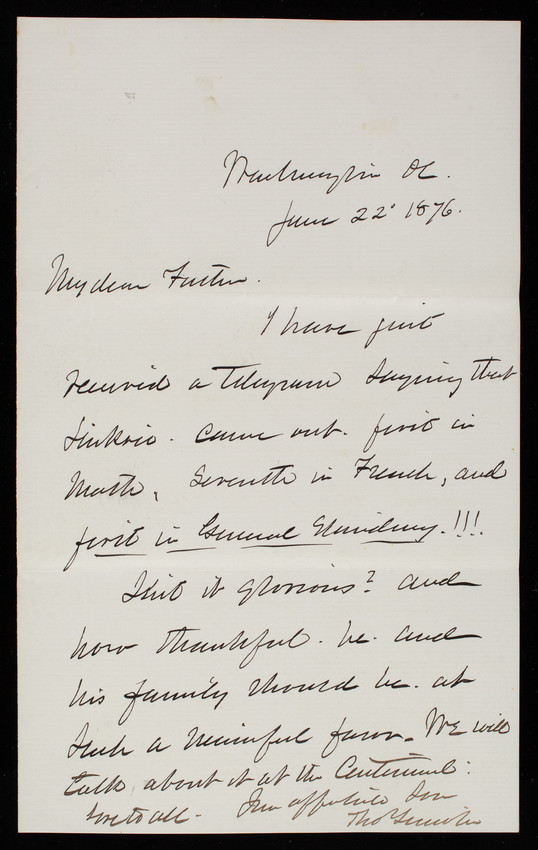 Washington DC.
June 22d 1876.
My dear Father.
I have just
received a Telegram saying that
came out. first in
Math, Seventh in French, and
first in General Standing.!!!
Isn't it glorious? and
how thankful. he. and
his family should be. at
such a merciful favor. We will
talk about it at the Centennial:
Love to all. Your affectionate Son
Thos Lincoln